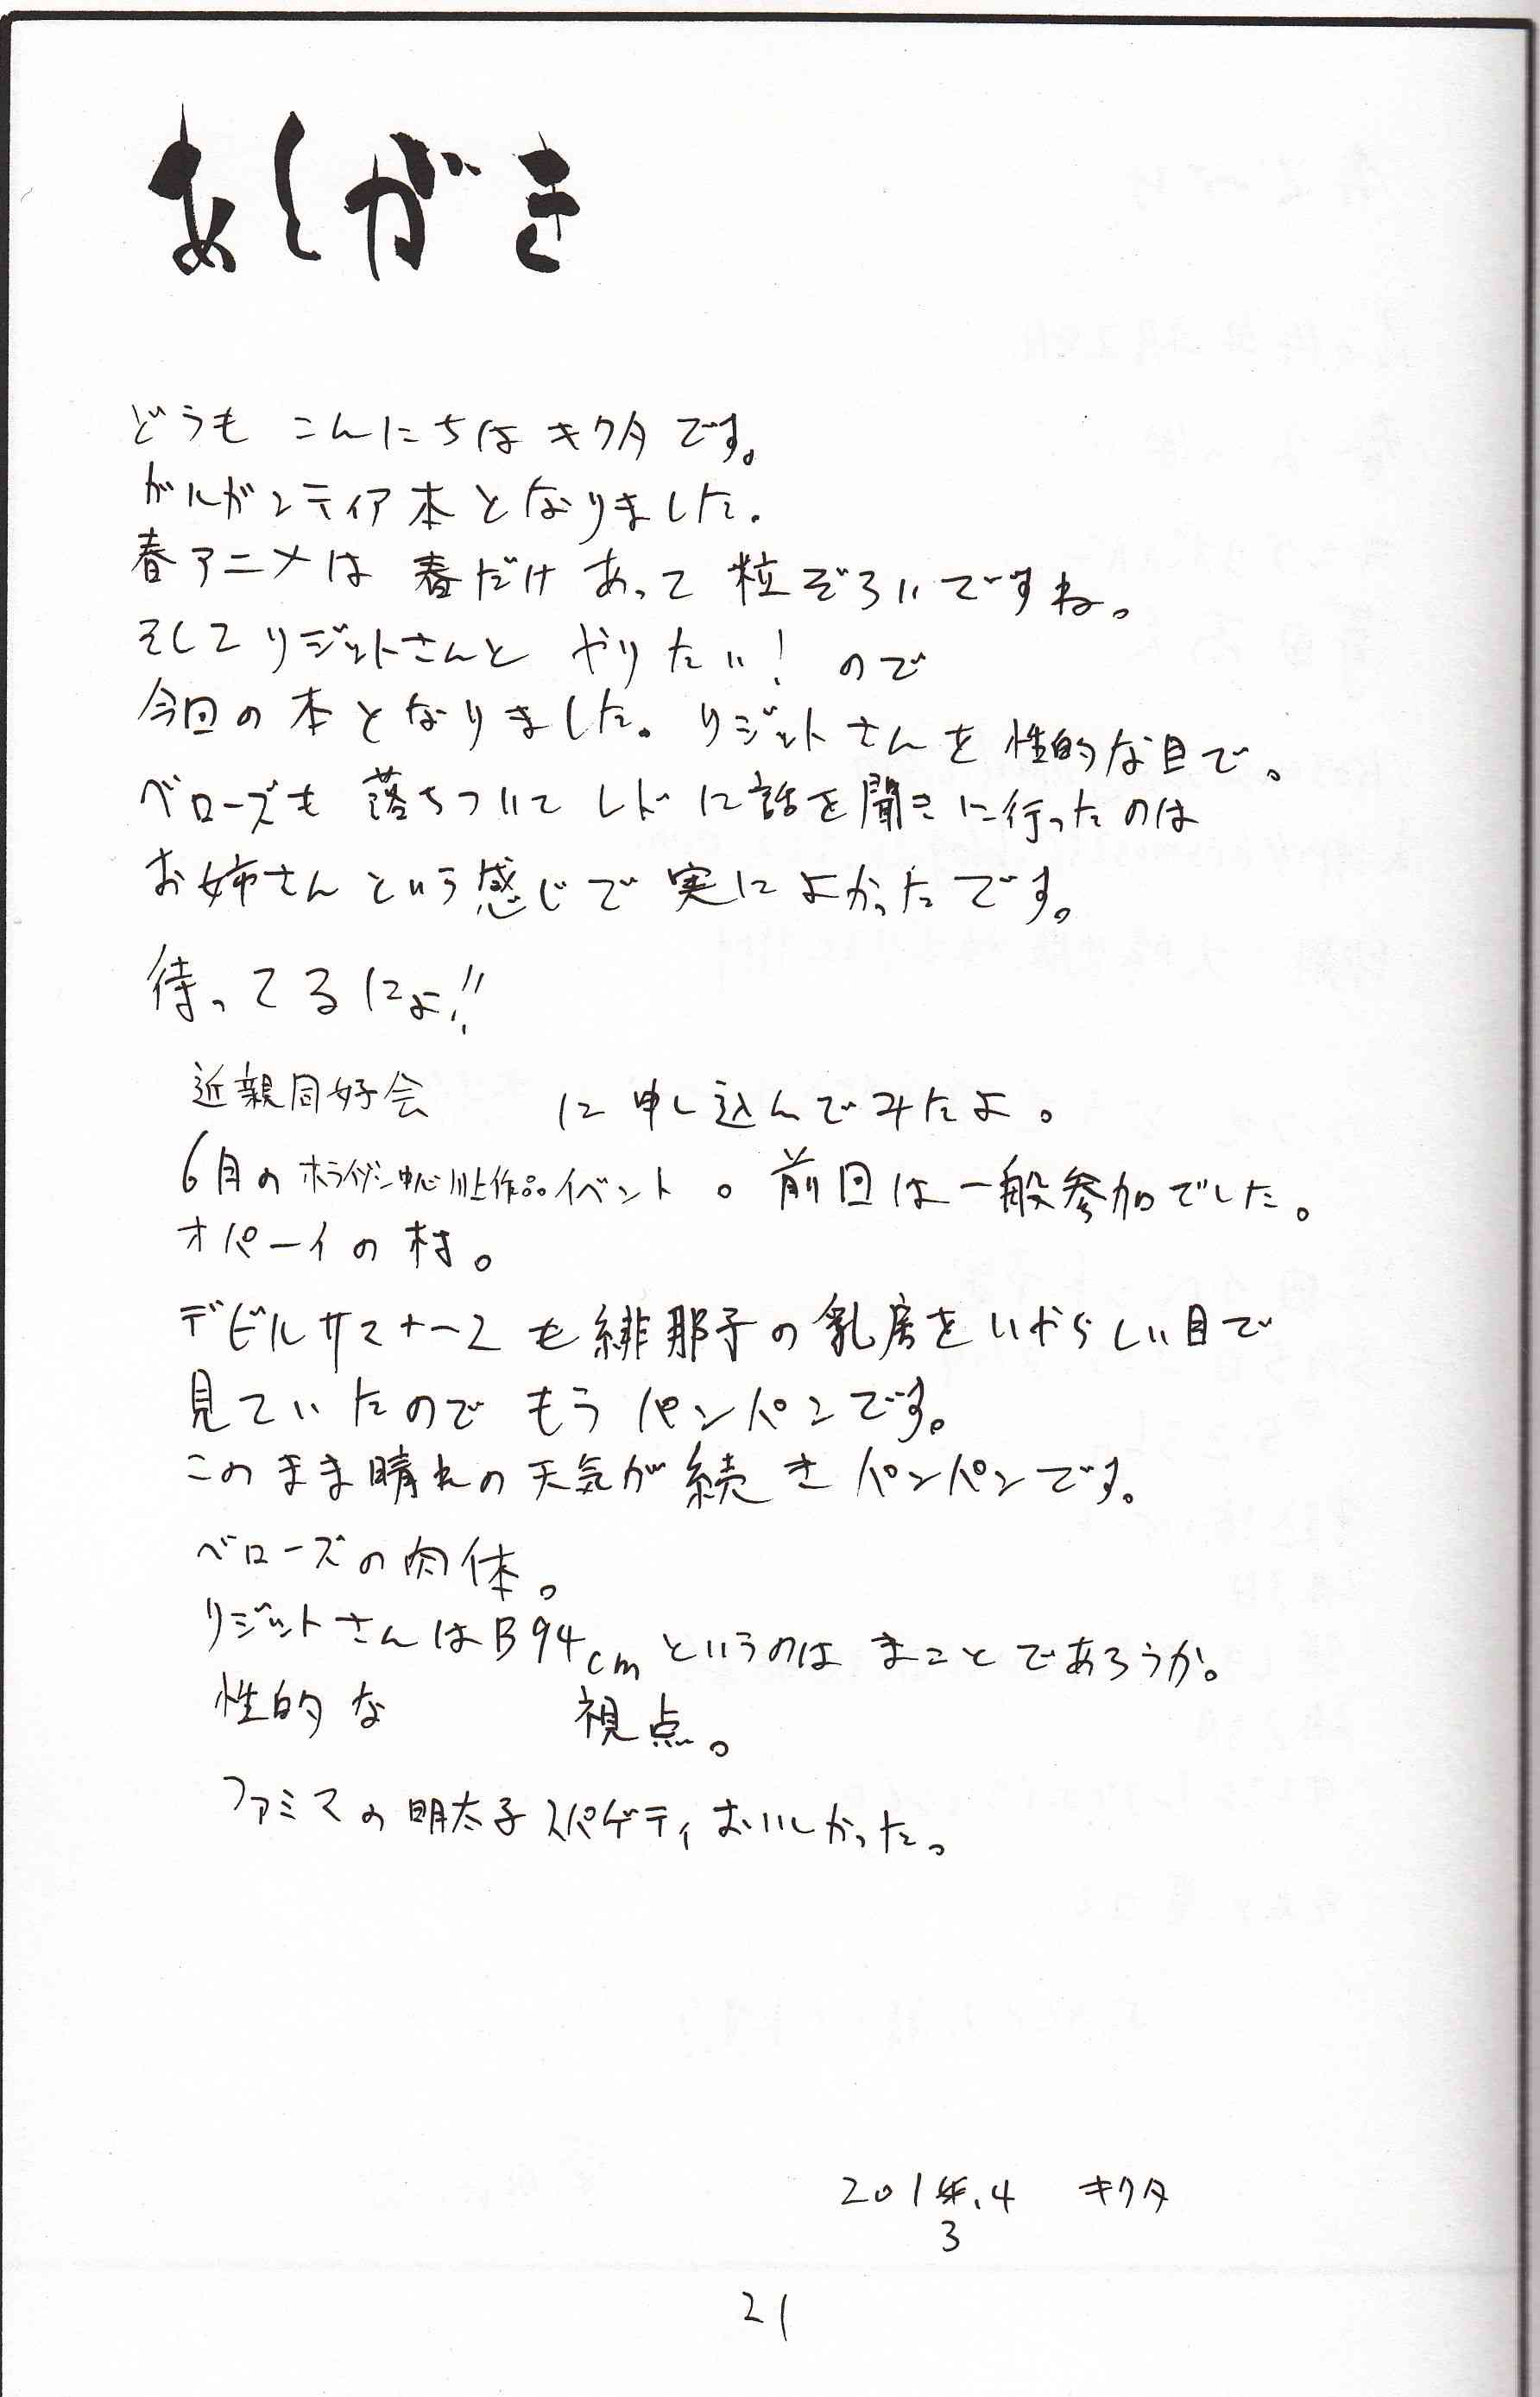 あしがき
どうも こんにちは キクタです。
ガルガンティア本となりました。
春アニメは 春だけあって 粒ぞろいですね。
そしてリジットさんと やりたい! ので
今回の本となりました。リジットさんを性的な目で。
ベローズも 落ちついて レドに話を聞きに行ったのは
お姉さんという感じで 実によかったです。
待ってるにょ!!
近親同好会 に申し込んでみたよ。
6月のホライゾン中心川上作品イベント。前回は一般参加でした。
オパーイの村。
デビルサマナー2も緋那子の乳房をいやらしい目で
見ていたので もう パンパンです。
このまま晴れの天気が続きパンパンです。
ベローズの肉体。
リジットさんはB94cmというのは まことであろうか。
性的な 視点。
ファミマの明太子スパゲティおいしかった。
201年.4 キクタ
3
21